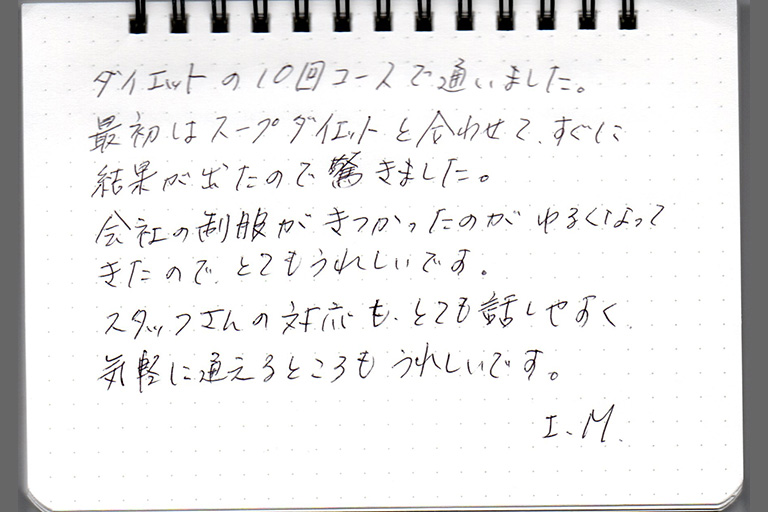 ダイエットの10回コースで通いました。
最初はスープダイエットと合わせて、すぐに
結果が出たので驚きました。
会社の制服がきつかったのがゆるくなって
きたので、とてもうれしいです。
スタッフさんの対応も、とても話しやすく、
気軽に通えるところもうれしいです。
I.M.